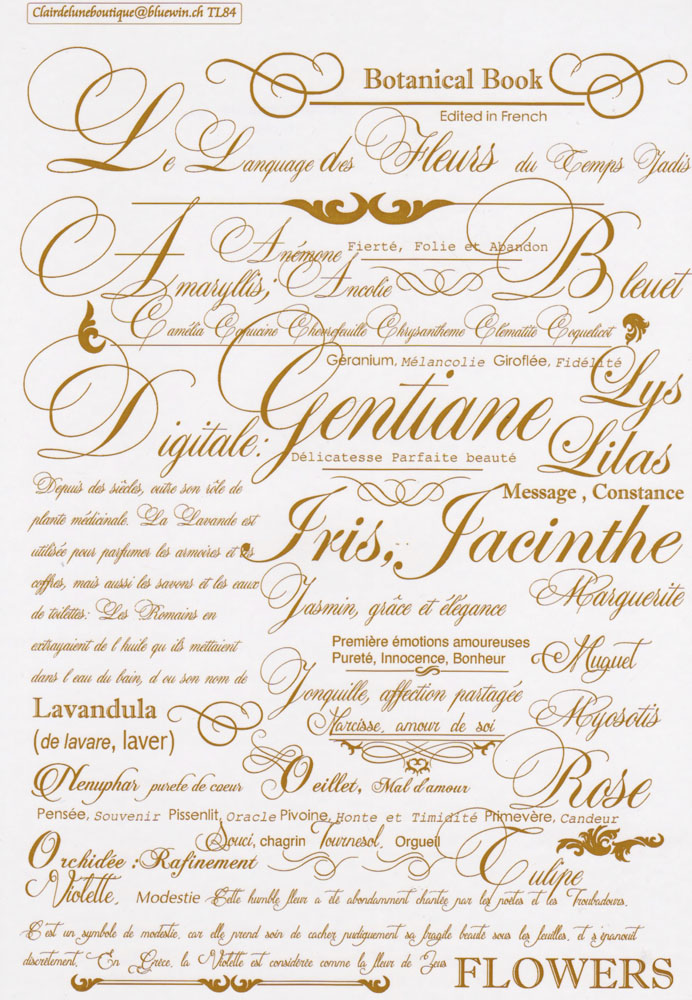 Clairdeluneboutique@bluewin.ch TL84
Botanical Book
Edited in French
Le Language des Fleurs du Temps Jadis
Anémone Fierté, Folie et Abandon
Amaryllis; Ancolie Bleuet
Camélia Capucine Chevrefeuille Chrysantheme Clématite Coquelicot
Géranium, Mélancolie Giroflée, Fidélité
Lys
Digitale: Gentiane
Lilas
Délicatesse Parfaite beauté
Message , Constance
Depuis des siècles, outre son rôle de
plante médicinale. La Lavande est
utilisée pour parfumer les armoires et les
coffres, mais aussi les savons et les eaux
de toilettes: Les Romains en
extrayaient de l huile qu ils mettaient
dans l eau du bain, d ou son nom de
Lavandula
(de lavare, laver)
Iris, Jacinthe
Jasmin, grâce et élégance
Marguerite
Première émotions amoureuses
Pureté, Innocence, Bonheur
Muguet
Jonquille, affection partagée
Narcisse, amour de soi
Myosotis
Nenuphar purete de coeur Oeillet, Mal d'amour
Rose
Pensée, Souvenir Pissenlit, Oracle Pivoine, Honte et Timidité Primevère, Candeur
Souci, chagrin Tournesol, Orgueil
Orchidée : Rafinement
Tulipe
Violette, Modestie Cette humble fleur a ete abondamment chantée par les poètes et les Troubadours.
C est un symbole de modestie, car elle prend soin de cacher pudiquement sa fragile beauté sous les feuilles, et s epanouit
discrètement, En Grèce, la Violette est considerée comme la fleur de Zeus
FLOWERS